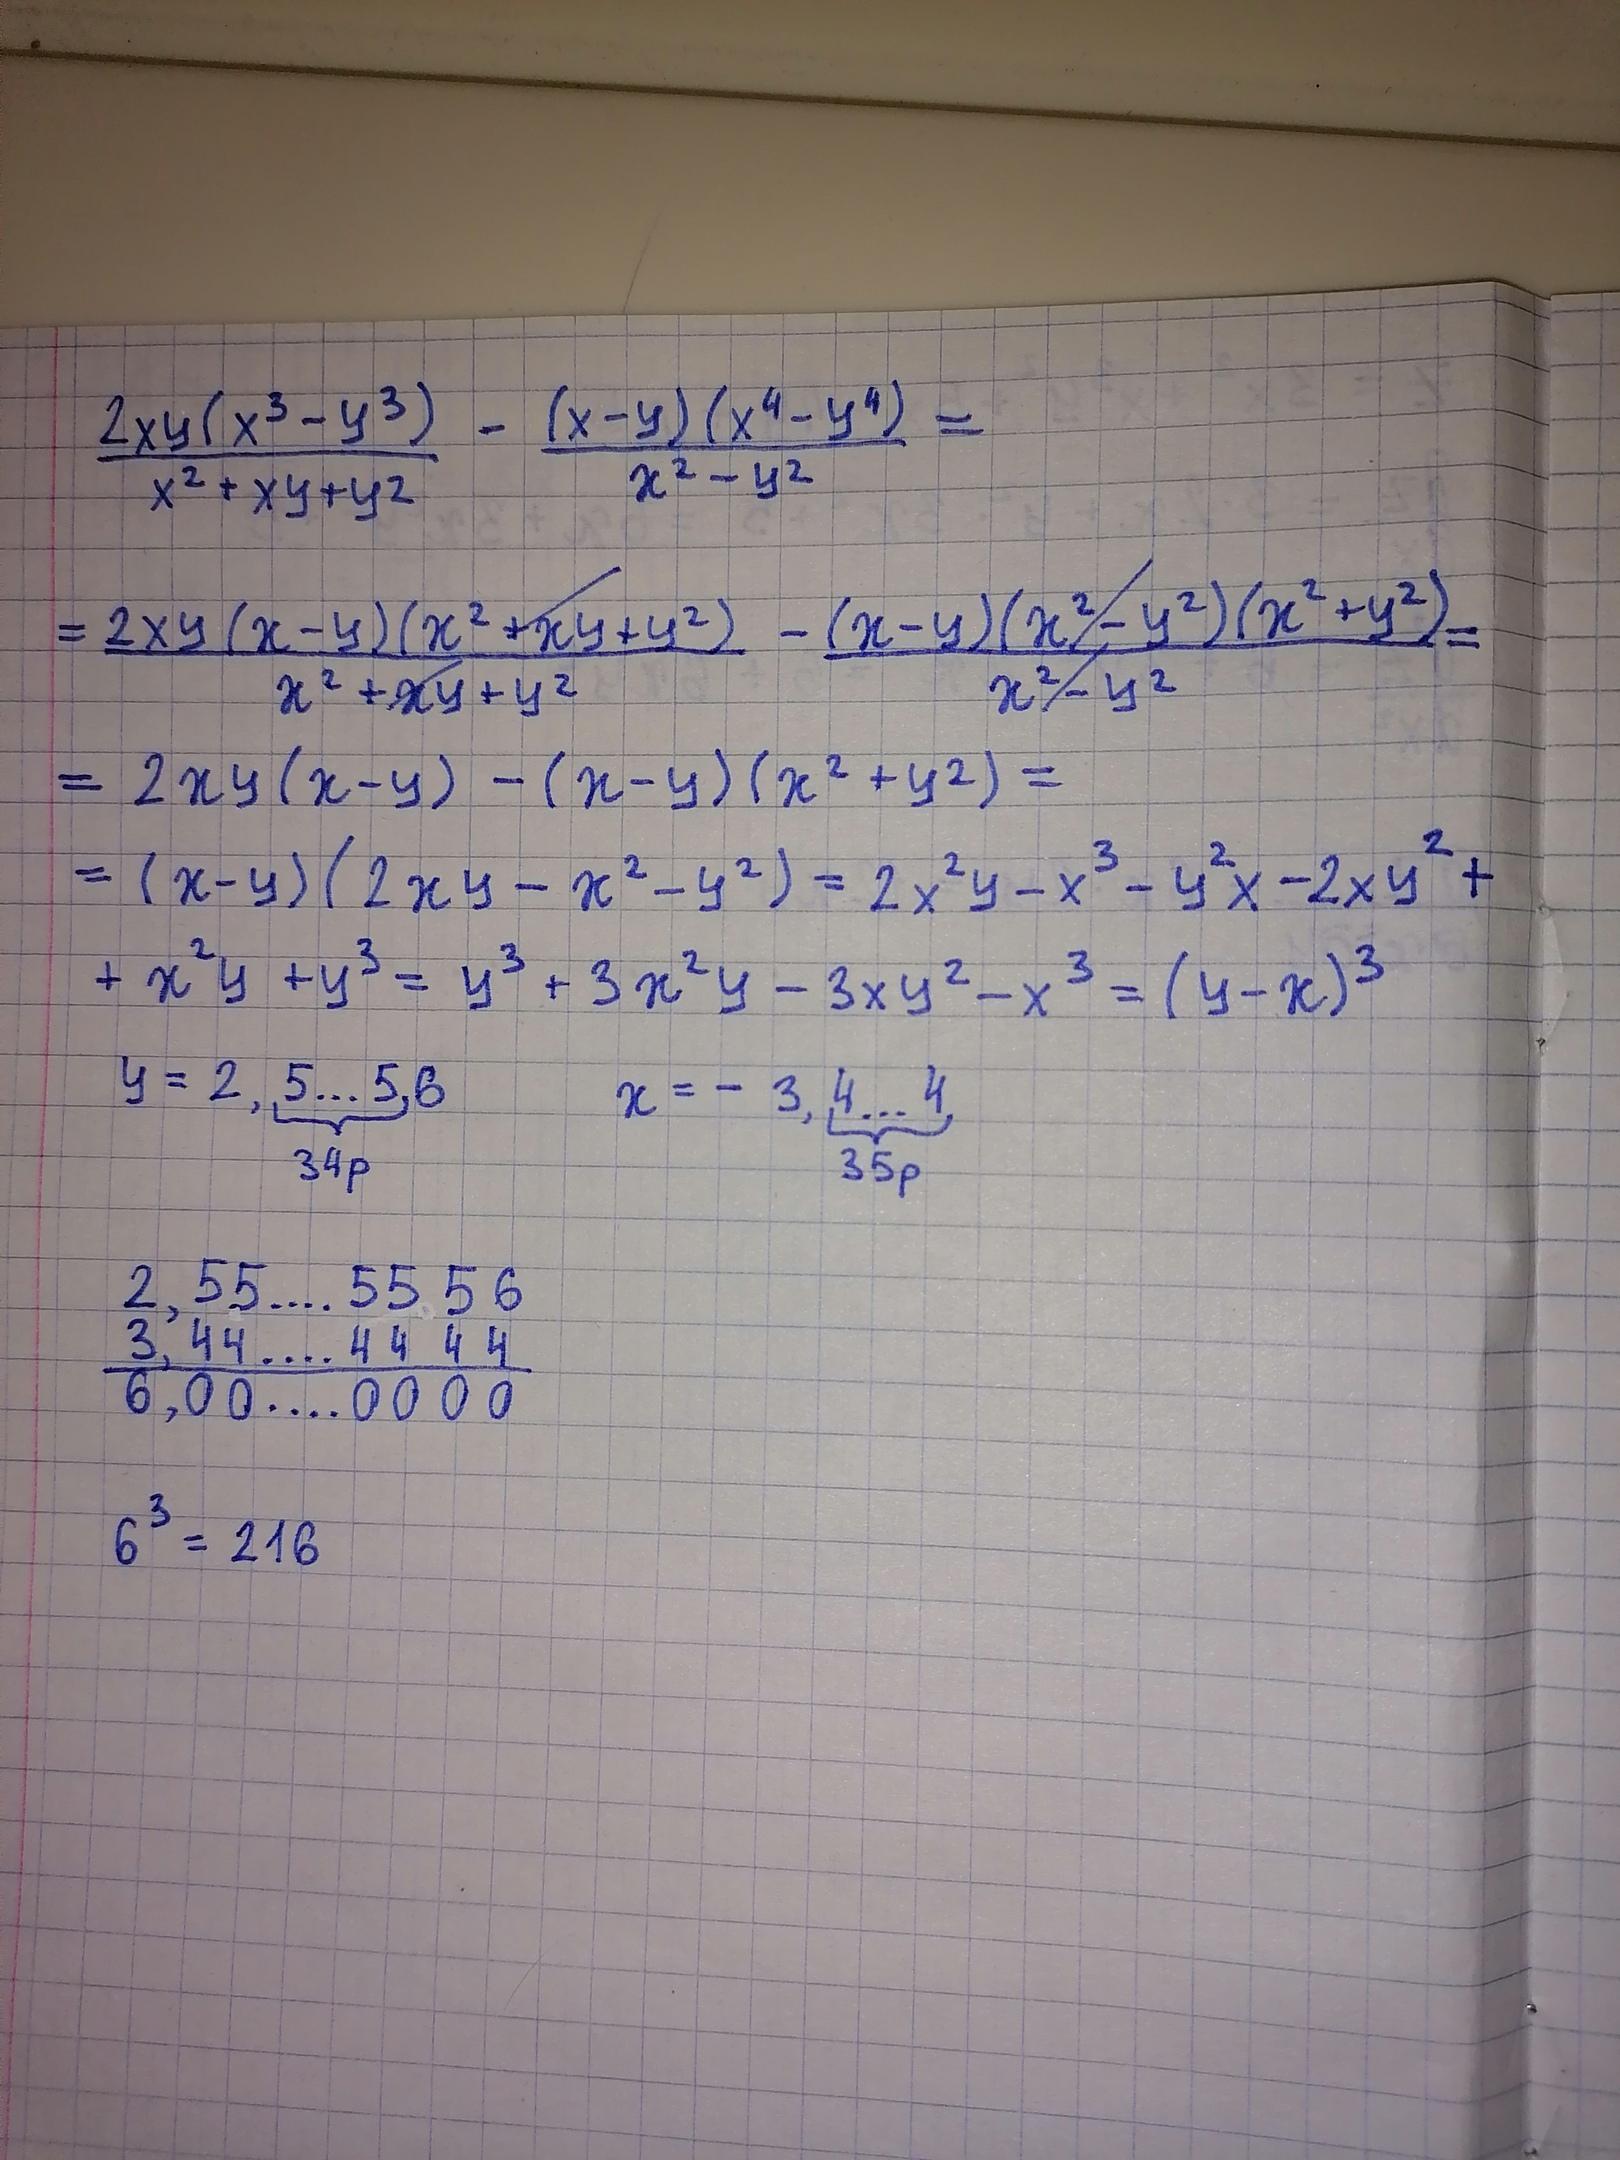 2xy(x³-y³)/(x²+xy+y²) - (x-y)(x⁴-y⁴)/(x²-y²) =
= 2xy(x-y)(x²+xy+y²)/(x²+xy+y²) - (x-y)(x²-y²)(x²+y²)/(x²-y²) =
= 2xy(x-y) - (x-y)(x²+y²) =
= (x-y)(2xy - x² - y²) = 2x²y - x³ - y²x - 2xy² +
+ x²y + y³ = y³ + 3x²y - 3xy² - x³ = (y-x)³
y = 2, 5...5,6 x = - 3, 4...4,
34р 35р
2,55....5556
3,44....4444
6,00....0000
6³ = 216